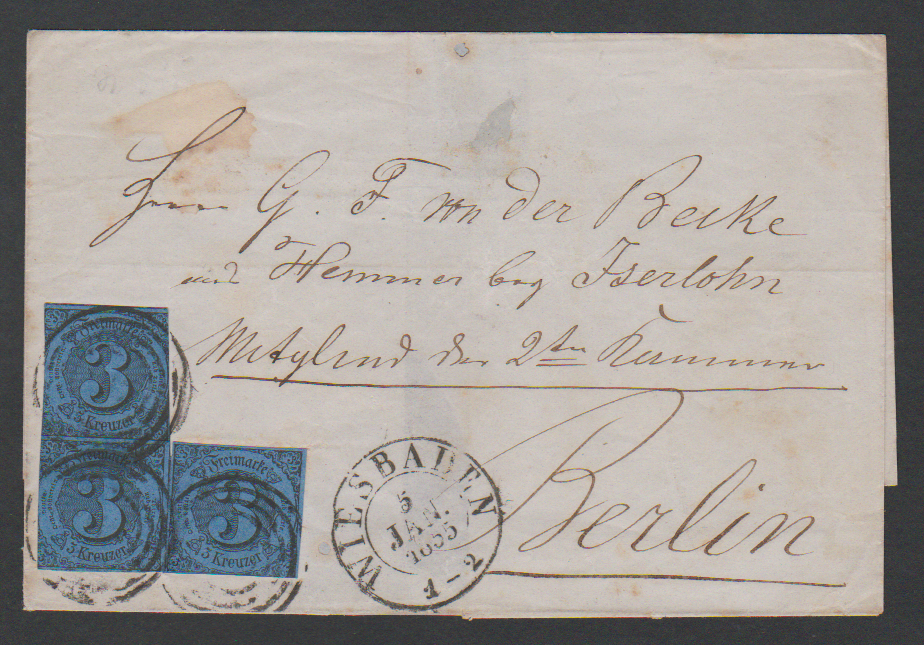 Herrn G. F. von der Becke
und Hemmer bey Iserlohn
Mitglied der 2ten Kammer
Berlin
Freimarke
3
3 Kreuzer
3
3 Kreuzer
Freimarke
3
3 Kreuzer
WIESBADEN
5
JAN.
1855
1-2